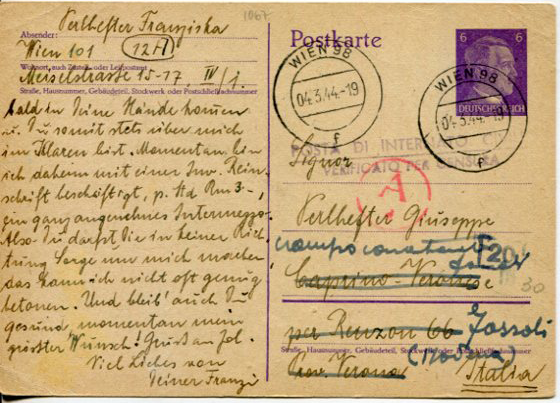 1067
Absender: Verlhefter Franziska
Wien 101 (12A)
Wohnort, auch Zustell- oder Leitpostamt
Meiselstrasse 15-17, IV/1.
Straße, Hausnummer, Gebäudeteil, Stockwerk oder Postschließfachnummer
bald in Deine Hände kommen
u. Du somit stets über mich
im Klaren bist. Momentan bin
ich daheim mit einer Rein-
schrift beschäftigt, p. Rm 3-,
ein ganz angenehmes Intermezzo.
Also Du darfst Dir in keiner Rich-
tung Sorge um mich machen,
das kann ich nicht oft genug
betonen. Und bleib' auch Du
gesund, momentan mein
größter Wunsch! Gruß an
Viel Liebes von
Deiner Franzi
Postkarte
6 6
DEUTSCHES REICH
WIEN 98
04.3.44.-19
f
WIEN 98
04.3.44.-19
POSTA DI INTERNATO
VERIFICATO PER CENSURA
A
Signor
Verlhefter Giuseppe
campo
T 20
Caprino-Veronese
30
per Renzon 66 Fossoli
Straße, Hausnummer, Gebäudeteil, Stockwerk oder Postschließfachnummer
(Modena)
Prov. Verona Italia